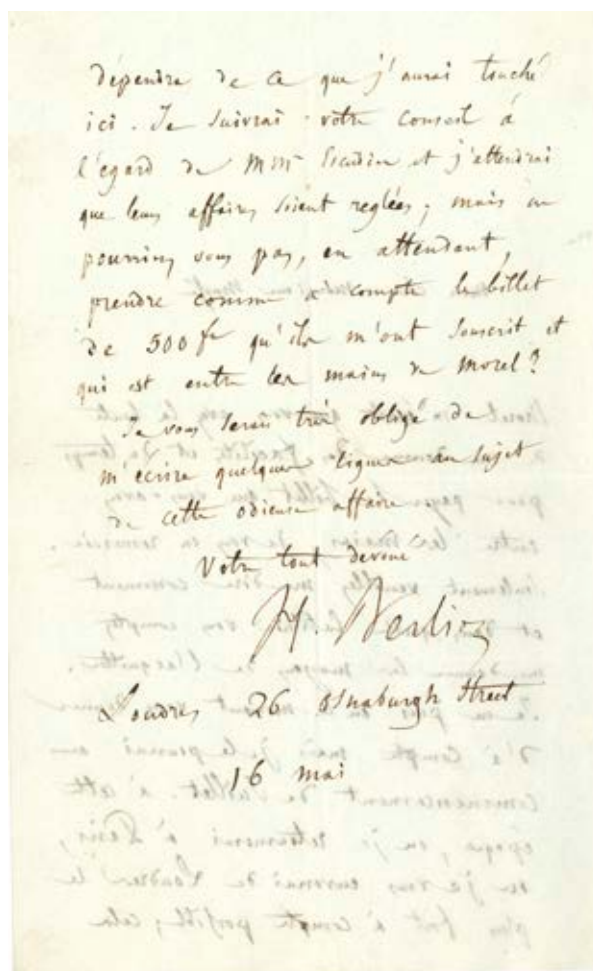 dépendre de ce que j'aurai touché
ici. Je suivrai votre conseil à
l'égard de MM Escudier et j'attendrai
que leurs affaires soient reglées; mais ne
pourriez vous pas, en attendant,
prendre comme à compte le billet
de 500 fr qu'ils m'ont souscrit et
qui est entre les mains de Morel?
Je vous serais très obligé de
m'ecrire quelques lignes au sujet
de cette odieuse affaire
Votre tout devoué
H. Berlioz
Londres 26 osnaburgh Street
16 mai